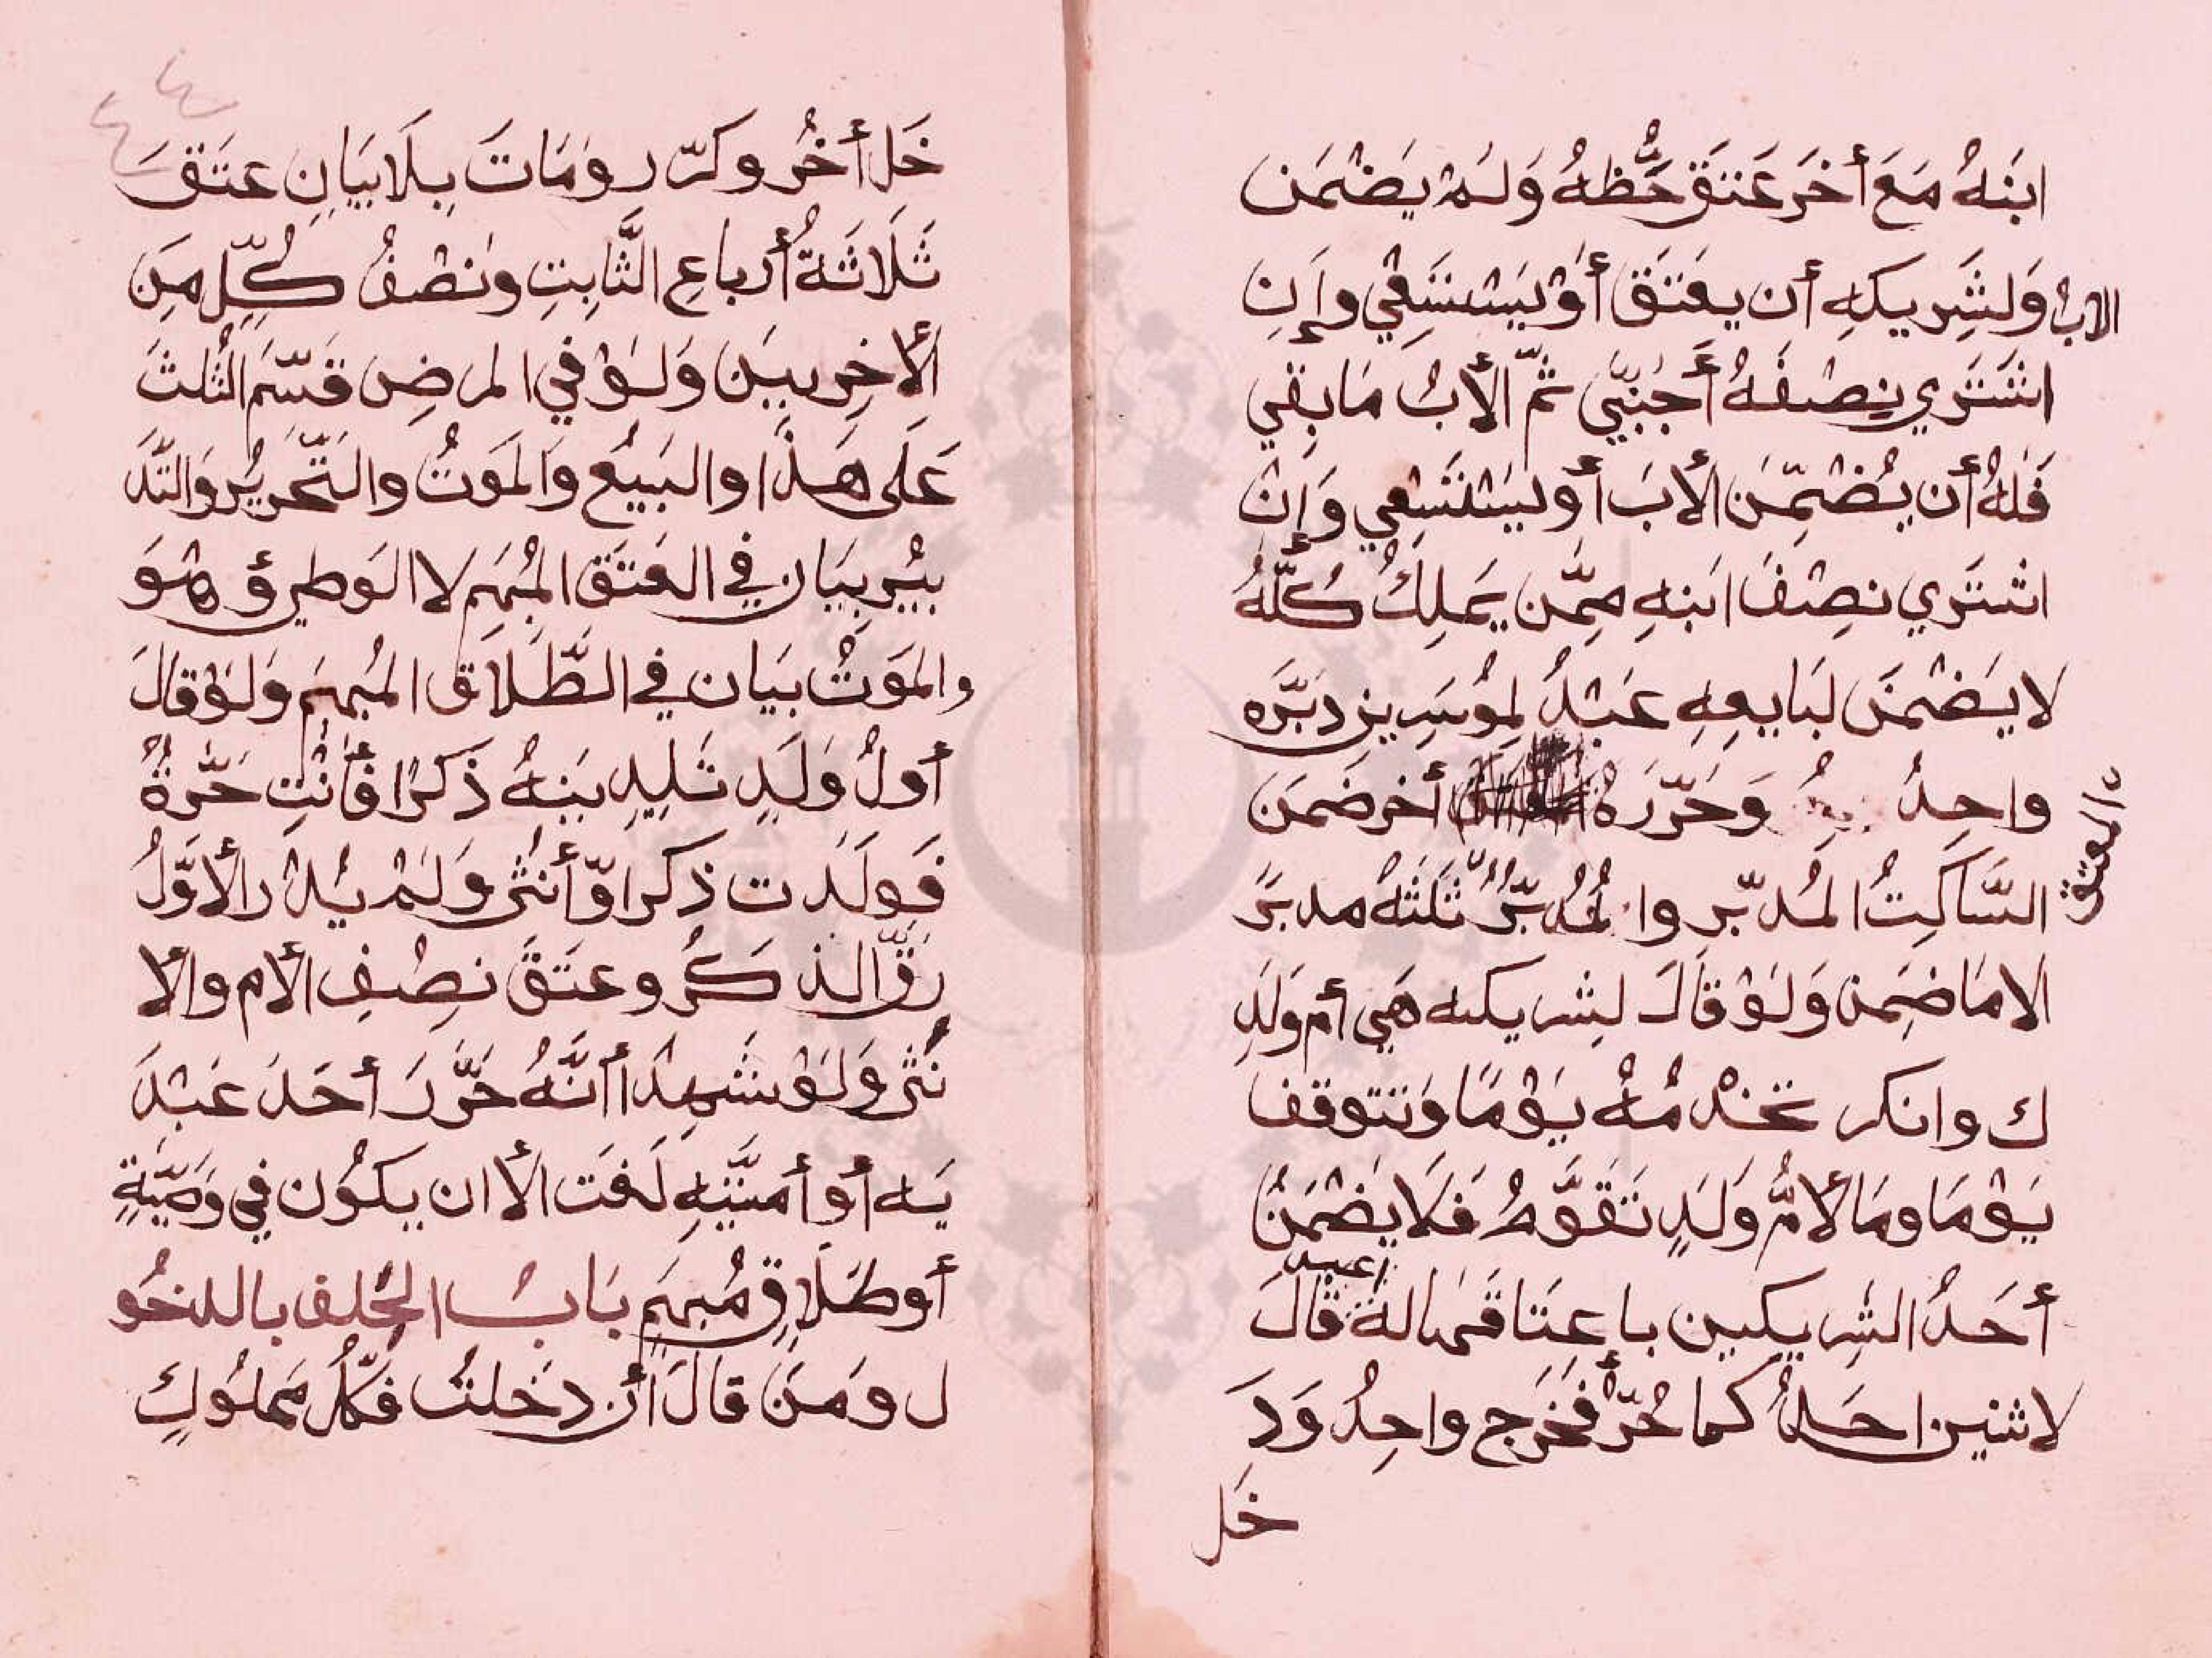 ابنَهُ مَعَ أخَر عَتَقَ حَظُّهُ وَلَمْ يَضْمَن
الابُ وَلشَرِيكِهِ أن يعَتَقَ أوْ يَسْتسَعِيْ وإن
اشتَري نِصْفَهُ أجَنَبّي ثمّ الأبُ مَابقِي
فَلهُ أن يُضْمّنَ الأبَ أو يَسْتسَعِي وَإنْ
اشتَري نصِفَ ابَنهِ مِمَّن يَملِكُ كُلَّهُ
لا يَضْمَنَ لبَايعِهِ عَبْدٌ لمُوسَرِين دَبَّرَه
واحِدُ وَحَرّرَهُ أخر ضَمَن
دا العتق
السَّاكَتُ المُدبّر والمُدُبّرُ ثلَثهُ مدبرًَ
الا مَاضَمِن وَلَوْ قاَلَ لشريكه هَي أم وَلَدِ
ك وانكر تخدْمُهُ يَوْمًا وَتتوقف
يَوْمَا ومَا لأمُّ وَلَدٍ تَقَوّمُ فَلا يَضْمَنُ
أحَدُ الشرِيكين باعِتَاقَهالهُ قالَ
اعبد
لاثنين احَدُ كما حُرّ فخرَج واحِدُ وَدَ
خَل
خَل أخُر وكرّر وَمَاتَ بِلَا بيَانِ عتَقَ
ثَلَاثَةُ أرباعِ الثَّابِتِ ونصْفُ كُلِّ مِن
الأخِريَين وَلَوْ في المرضِ قَسّمَ الثلثَ
عَلَى هَذا والبَيعُ وَالمَوتُ والتّحرِيرُ وَالتَّدَ
بيُر بيَان في العَتَقِ المُبهَم لا الوَطِيُ وهْوَ
والمَوتُ بيَان في الطَّلَاقِ المُبهَم وَلَوْ قالَ
أولُ وَلَدٍ تَلِدِينَهُ ذَكَرًا فأنْتِ حَرَّةُ
فَوَلَدَت ذكَرا وّأنثى وَلَمْ يُدْر الأوَّلُ
رَقّ الذكَرُ وعتَقَ نصْفِ الأم والا
نُثى وَلَوْ شَهِدَا أنَّهُ حَرَّرَ أحَدَ عَبْدَ
يَه أو أمتَيهِ لَغَت الأ ان يكوُن في وَصِيّةِ
أو طلَاقٍ مُبهَمٍ بَابُ الحِلف بالدخُو
ل وَمَن قالَ أن دَخَلتُ فكُلُّ مَملوُكٍ
٤٤